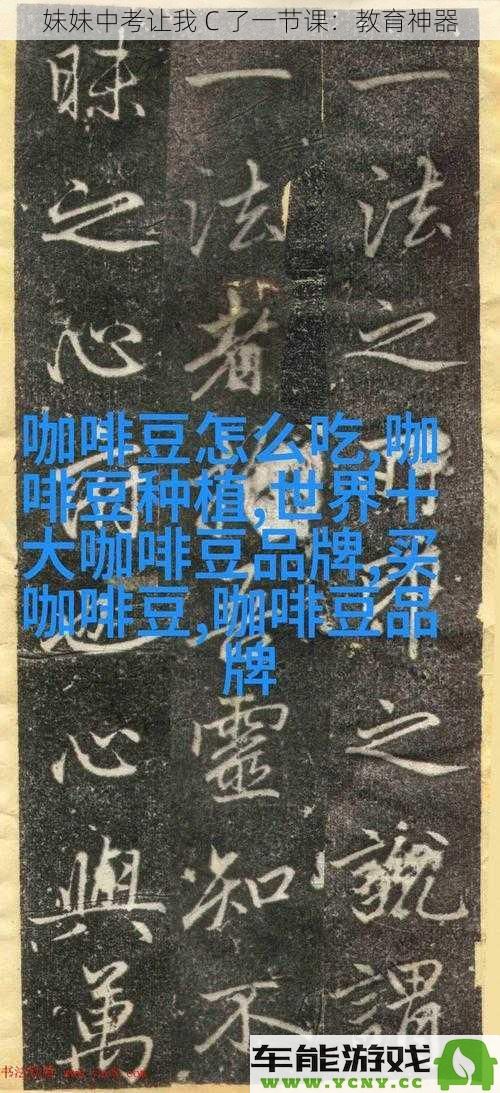 妹妹中考让我 C 了一节课：教育神器
一法之之說謂
一法者靈知不
昧之心心與萬
咖啡豆怎么吃,咖
啡豆种植,世界十
大咖啡豆品牌,买
咖啡豆,咖啡豆品
牌
车能游戏
WWW.YCNY.CC